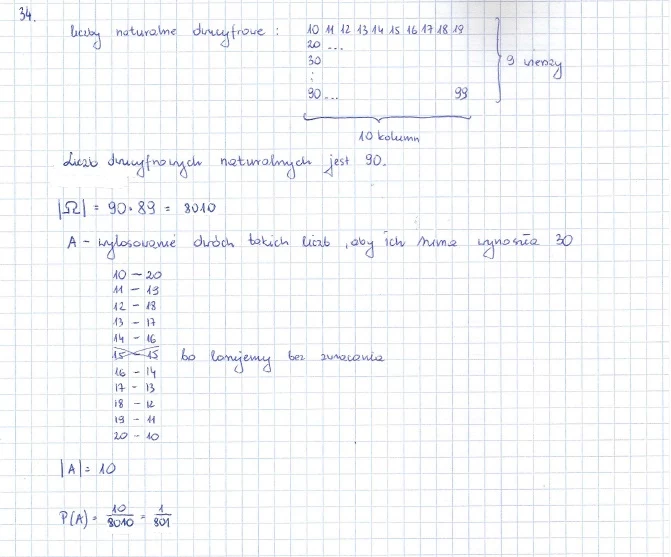 34.
liczby naturalne dwucyfrowe : 10 11 12 13 14 15 16 17 18 19
20 ...
30
:
90 ... 99
9 wierszy
10 kolumn
Liczb dwucyfrowych naturalnych jest 90.
|Ω| = 90 · 89 = 8010
A - wylosowanie dwóch takich liczb, aby ich suma wynosiła 30
10 - 20
11 - 19
12 - 18
13 - 17
14 - 16
15 - 15 bo losujemy bez zwracania
16 - 14
17 - 13
18 - 12
19 - 11
20 - 10
|A| = 10
P(A) = 10/8010 = 1/801